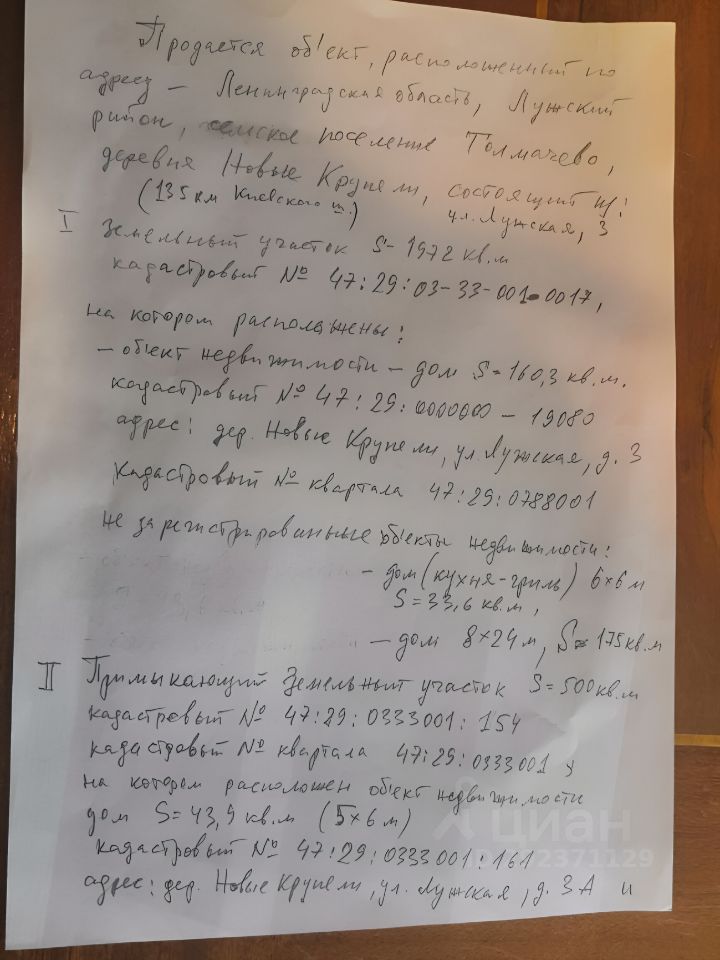 Продается объект, расположенный по
адресу – Ленинградская область, Лужский
район, поселение Толмачево,
деревня Новые Крупели, состоящий из:
(135 км Киевского ш.) ул. Лужская, 3
I Земельный участок S- 1972 кв.м
кадастровый № 47:29:03-33-001-0017,
на котором расположены:
– объект недвижимости – дом S= 160,3 кв.м.
кадастровый № 47:29:0000000 – 19080
адрес: дер. Новые Крупели, ул. Лужская, д. 3
Кадастровый № квартала 47:29:0788001
Не зарегистрированные объекты недвижимости:
– дом (кухня-гриль) 6×6 м
S=33,6 кв.м,
– дом 8×24 м, S= 175 кв.м
II Примыкающий Земельный участок S=500 кв.м
кадастровый № 47:29:0333001:154
кадастровый № квартала 47:29:0333001,
на котором расположен объект недвижимости
дом S=43,9 кв.м (5×6 м)
кадастровый № 47:29:0333001:161
адрес: дер. Новые Крупели, ул. Лужская, д. 3А и
циан